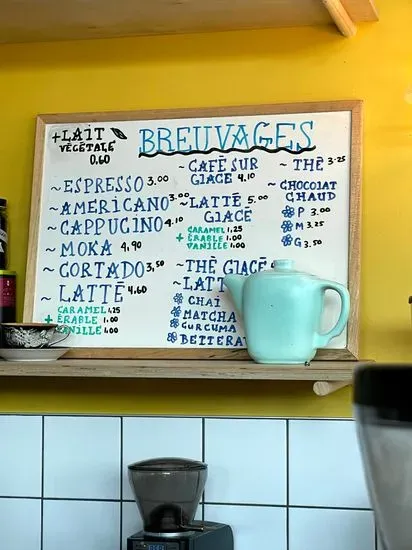 BREUVAGES
+LAIT
VÉGÉTALE
0.60
~ESPRESSO 3.00
~AMERICANO 3.00
~CAPPUCINO 4.10
~MOKA 4,90
~CORTADO 3,50
~LATTÉ 4.60
CARAMEL 1.25
+ ÉRABLE 1.00
VANILLE 1.00
~CAFÉ SUR
GLACE 4.10
~LATTÉ 5.00
GLACÉ
CARAMEL 1.25
+ ÉRABLE 1.00
VANILLE 1.00
~THÉ GLACÉ
~LATT
CHAI
MATCHA
CURCUMA
BETTERA
~THÉ 3.25
~CHOCOLAT
CHAUD
P 3.00
M 3.25
G 3.50